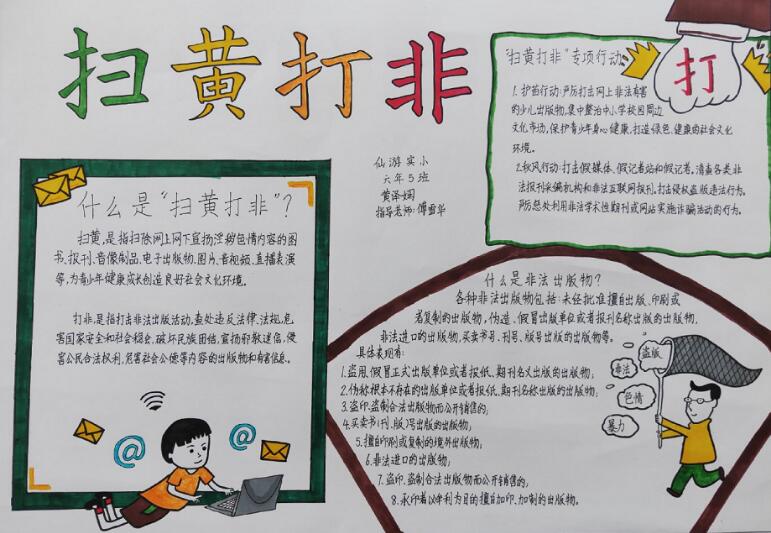 扫黄打非
仙游实小
六年5班
黄泽娴
指导老师:傅雪华
什么是“扫黄打非”?
扫黄,是指扫除网上网下宣扬淫秽色情内容的图
书、报刊、音像制品、电子出版物、图片、音视频、直播表演
等,为青少年健康成长创造良好社会文化环境。
打非,是指打击非法出版活动,查处违反法律、法规,危
害国家安全和社会稳定,破坏民族团结,宣扬邪教迷信,侵
害公民合法权利,危害社会公德等内容的出版物和有害信息。
@
@
“扫黄打非”专项行动
打
1. 护苗行动:严厉打击网上非法有害
的少儿出版物,集中整治中小学校园周边
文化市场,保护青少年身心健康,打造绿色、健康的社会文化
环境。
2.秋风行动:打击假媒体、假记者站和假记者,清查各类非
法报刊采编机构和非法互联网报刊,打击侵权盗版违法行为,
严厉惩处利用非法学术性期刊或网站实施诈骗活动的行为。
什么是非法出版物?
各种非法出版物包括:未经批准擅自出版、印刷或
者复制的出版物,伪造、假冒出版单位或者报刊名称出版的出版物,
非法进口的出版物,买卖书号、刊号、版号出版的出版物等。
具体表现有:
1.盗用、假冒正式出版单位或者报纸、期刊名义出版的出版物;
2.伪称根本不存在的出版单位或者报纸、期刊名称出版的出版物;
3.盗印、盗制合法出版物而公开销售的;
4.买卖书(刊、版)号出版的出版物;
5.擅自印刷或复制的境外出版物;
6.非法进口的出版物;
7.盗印、盗制合法出版物而公开销售的;
8.承印者以牟利为目的擅自加印、加制的出版物。
盗版
非法
色情
暴力